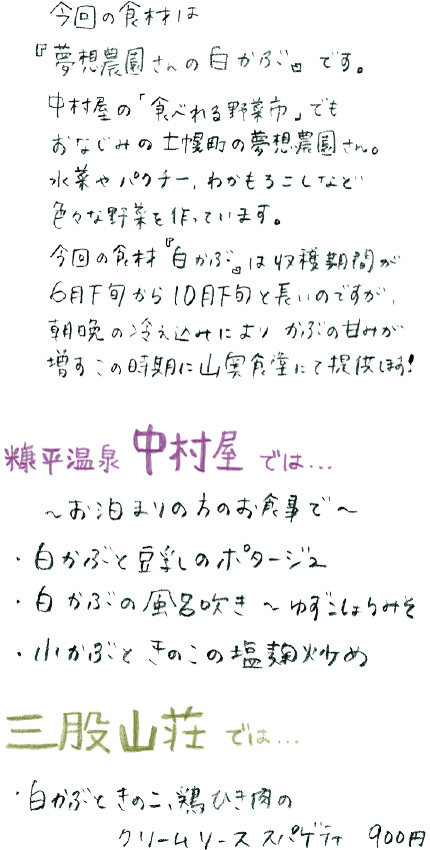 今回の食材は
『夢想農園さんの白かぶ』です。
中村屋の「食べれる野菜市」でも
おなじみの士幌町の夢想農園さん。
水菜やパクチー、わかもろこしなど
色々な野菜を作っています。
今回の食材『白かぶ』は収穫期間が
6月下旬から10月下旬と長いのですが、
朝晩の冷え込みにより かぶの甘みが
増すこの時期に山奥食堂にて提供します!
糠平温泉 中村屋 では…
～お泊まりの方のお食事で～
・白かぶと豆乳のポタージュ
・白かぶの風呂吹き ～ゆずこしょうみそ
・小かぶときのこの塩麹炒め
三股山荘 では…
・白かぶときのこ、鶏ひき肉の
クリームソーススパゲティ 900円